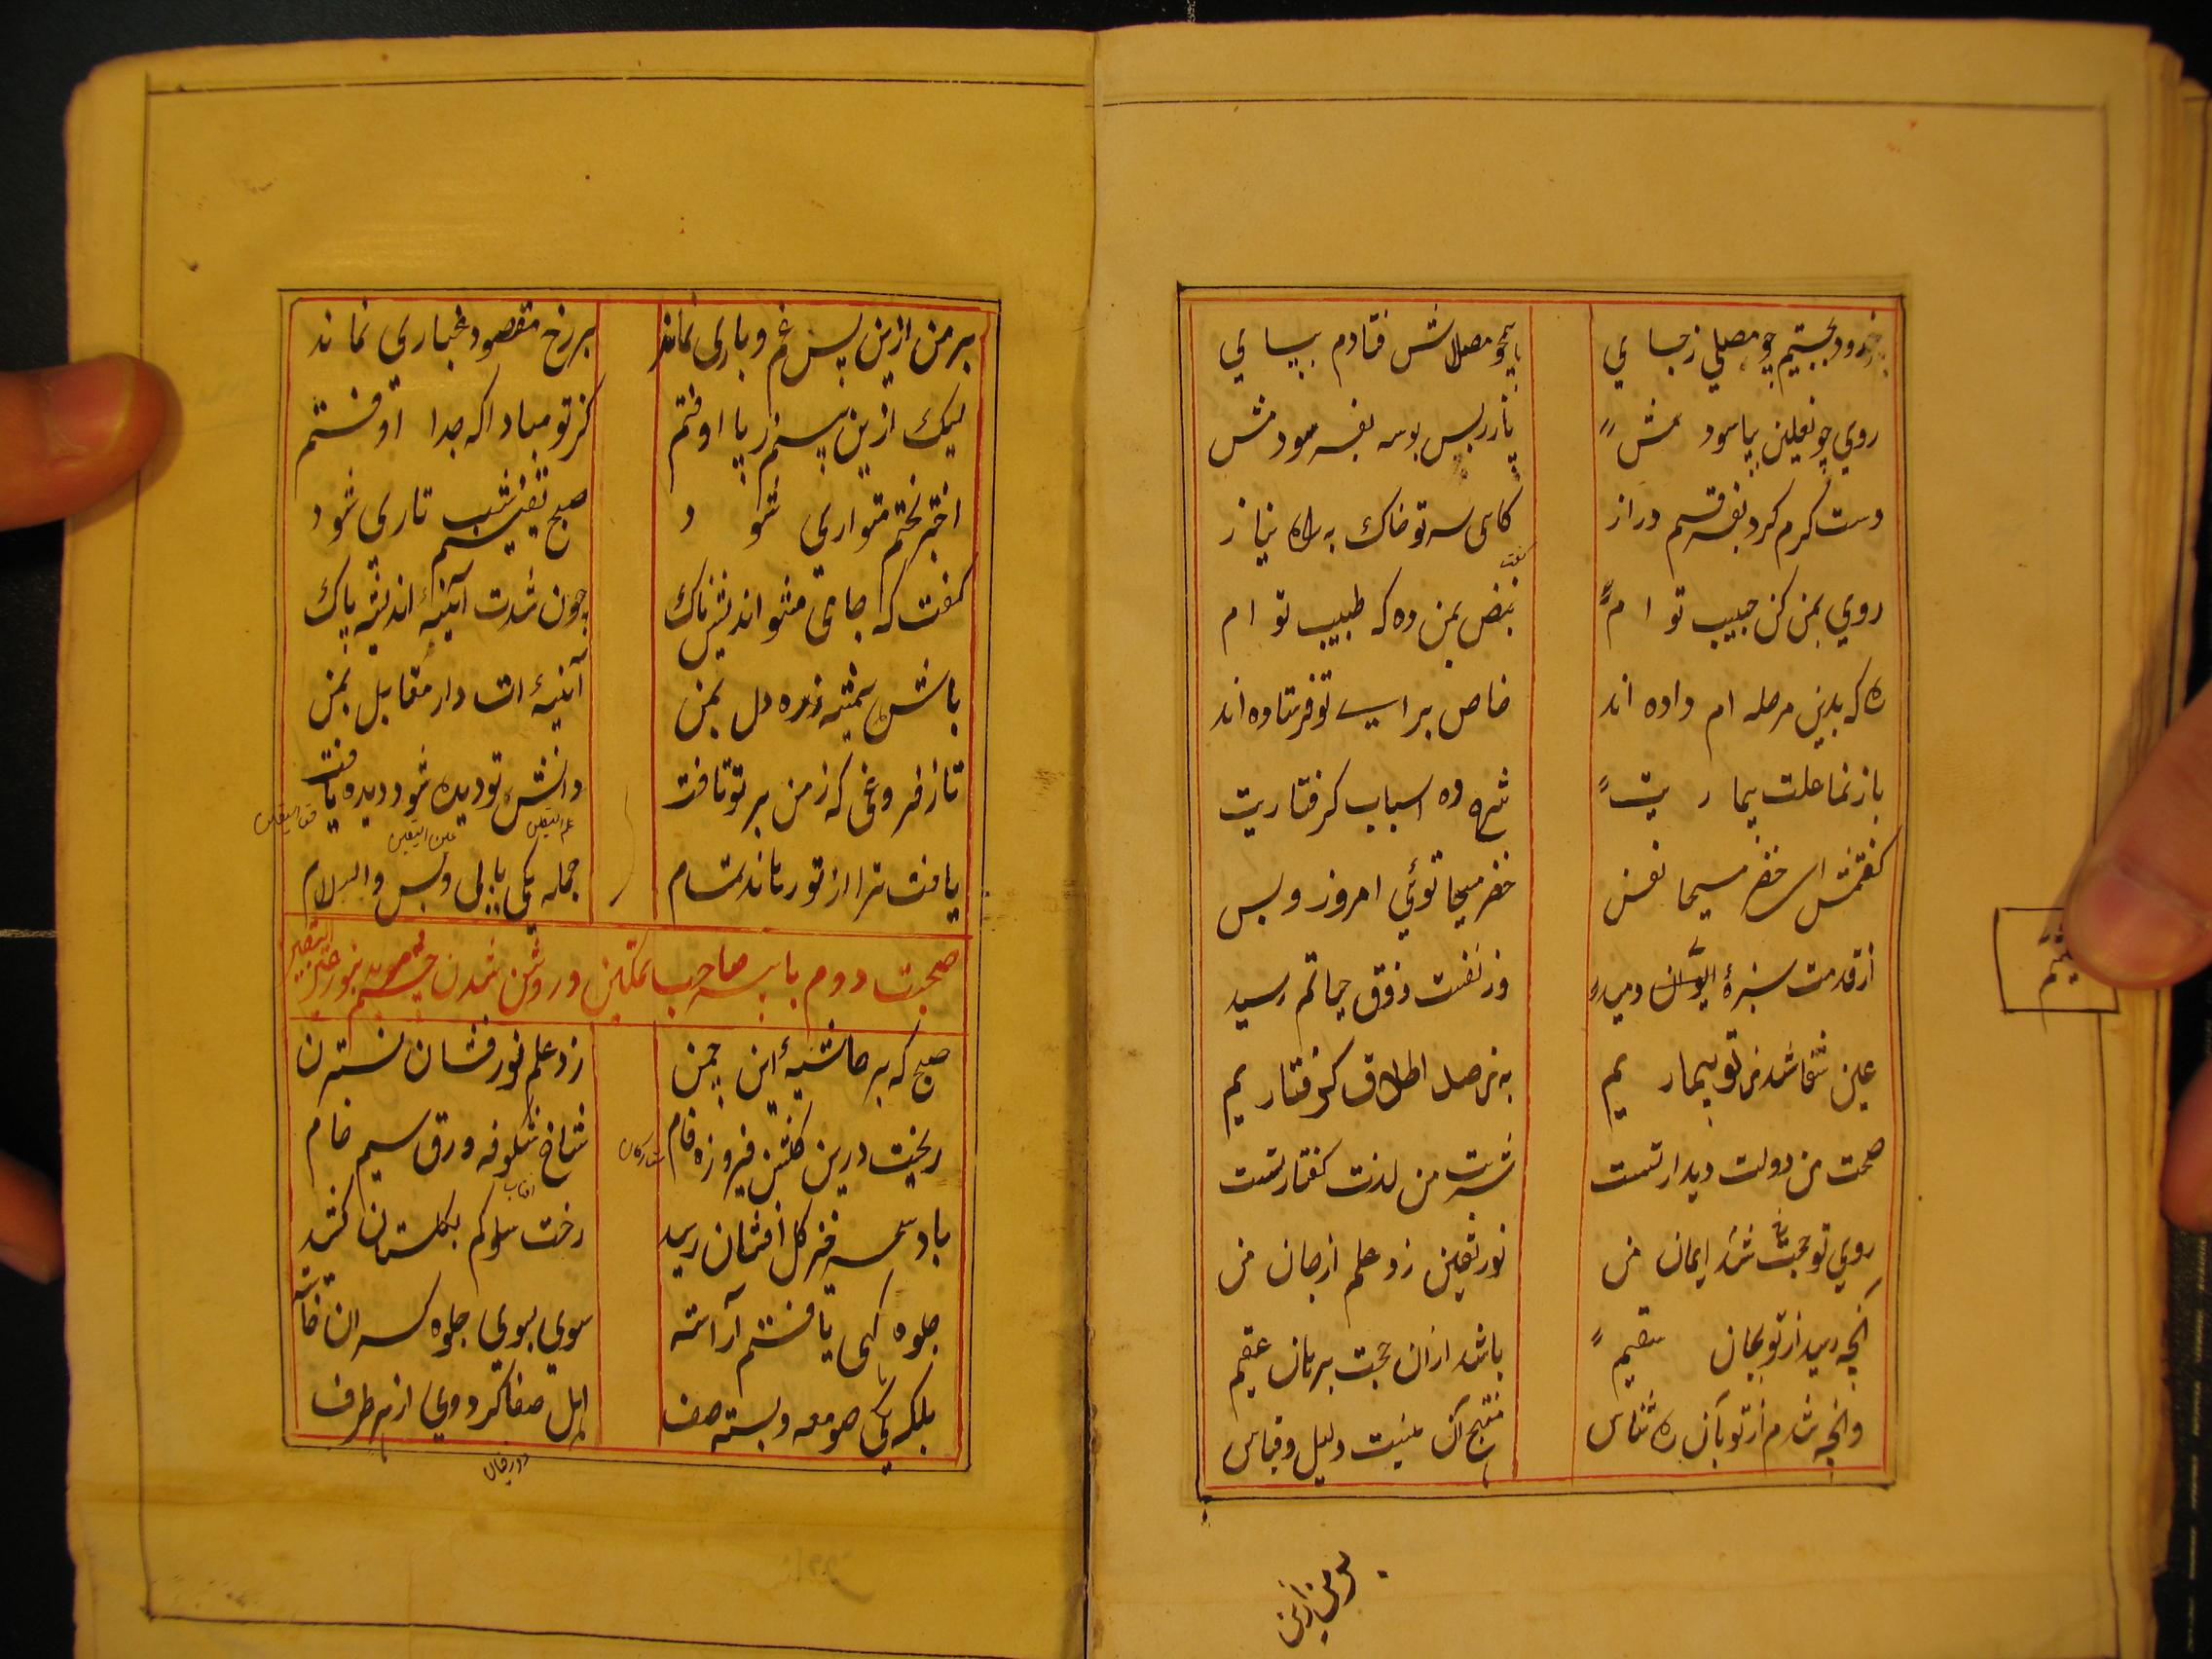 زود بجستم چو مصلی ز جای
همچو مصلاش فتادم بپای
روی چو نعلین بپاسودمش
پا ز ریس بوسه بفرسودمش
دست کرم کرد بفرقم دراز
کای سر تو خاک به راه نیاز
روی بمن کن حبیب تو ام
نبض بمن ده که طبیب تو ام
گفت
ه که بدین مرحله ام داده اند
خاص برای تو فرستاده اند
باز نما علت بیماریت
شرح ده اسباب کرفتاریت
کفتمش ای خضر مسیحا نفس
خضر مسیحا توئی امروز و بس
از قدمت سبزهٔ دمید
وز نفست ذوق حیاتم رسید
عین شفا شد ز تو بیماریم
به ز صد اطلاق کرفتاریم
صحت من دولت دیدار تست
شربت من لذت کفتار تست
روی تو حجت شد ایمان من
نور یقین زد علم از جان من
آنچه رسید از تو بجان سقیم
باشد ازان حجت برهان عقیم
وانچه شدم از تو بآن ره شناس
منتج آن نیست دلیل و قیاس
بر من ازین
بر من ازین پس غم و باری نماند
بر رخ مقصود غباری نماند
لیک ازین پیش ز پا اوفتم
کز تو مبادا که جدا اوفتم
اختر بختم متواری شود
صبح یقینم شب تاری شود
کفت که جامی مشو اندیشناک
چون شدت آینهٔ اندیشه پاک
باش همیشه زده دل بمن
آینه ات دار مقابل بمن
تا ز فروغی که ز من بر تو تافت
دانش تو دیده شود دیده یافت
علم الیقین
عین الیقین
حق الیقین
یافت ترا از تو رهاند تمام
جمله یکی یابی و بس والسلام
صحبت دوم با پیر صاحب تمکین در روشن شدن چشم مرید بنور عین الیقین
صبح که بر حاشیهٔ این چمن
زد علم نور فشان نسترن
ریخت درین کلشن فیروزه فام
شاخ شکوفه ورق سیم خام
ستارکان
افتاب
باد سحر فیز کل افشان رسید
رخت سلوکم بکلستان کشید
جلوه کهی یافتم آراسته
سوی بسوی جلوه کران خاسته
بلکه یکی صومعه و بسته صف
اهل صفا کرد وی از هر طرف
درختان